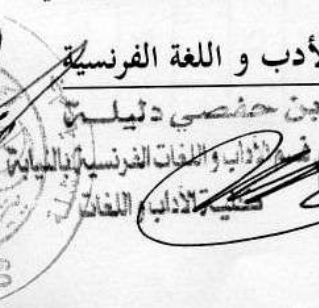 لأدب و اللغة الفرنسية
بن حفصي دليلة
قسم الآداب واللغات الفرنسية بالنيابة
كلية الآداب و اللغات